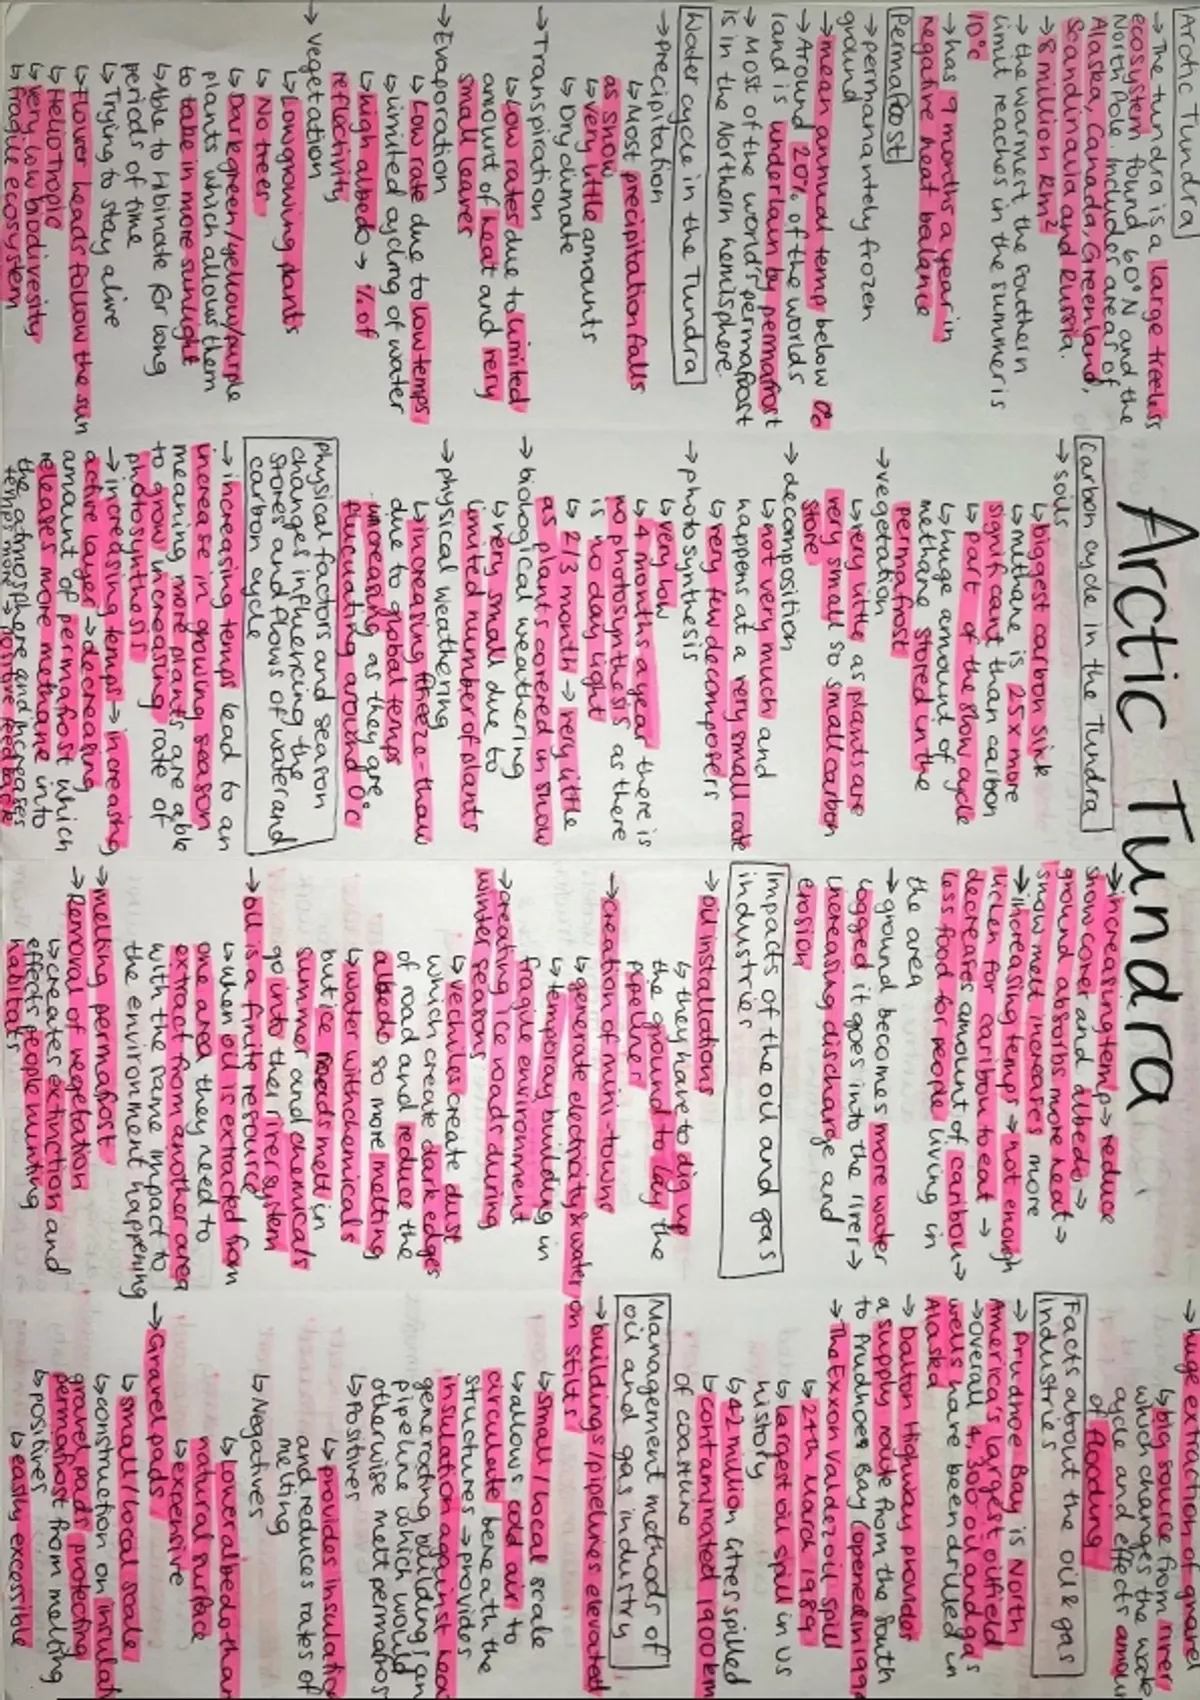 Arctic Tundra
Arctic Tundra
→ The tundra is a large treeless
ecosystem found 60°N and the
North Pole. Includes areas of
Alaska, Canada, Greenland,
Scandinavia and Russia.
→ 8 million km²
→ the warmest the southern
limit reaches in the summer is
10°c
→ has 9 months a year in
negative heat balance
Permafrost
→ permanantely frozen
ground
→ mean annual temp below 0°
→ Around 20% of the worlds
land is underlain by permafrost
→ Most of the world's permafrost
is in the Northern hemisphere.
Water cycle in the Tundra
→ Precipitation
↳ Most precipitation falls
as snow
↳ very little amounts
↳ Dry climate
→ Transpiration
↳ Low rates due to limited
amount of heat and very
small leaves
→ Evaporation
↳ Low rate due to low temps
↳ Limited cycling of water
↳ High albedo → % of
reflectivity
→ vegetation
↳ Low growing plants
↳ No trees
↳ Dark green/yellow/purple
plants which allows them
to take in more sunlight
↳ Able to Hibinate for long
periods of time
↳ Trying to stay alive
↳ Flower heads follow the sun
↳ Heliotropic
↳ very low biodiveristy
↳ fragile ecosystem
Carbon cycle in the Tundra
→ soils
↳ biggest carbon sink
↳ methane is 25x more
significant than carbon
↳ part of the slow cycle
↳ huge amount of
methane stored in the
permafrost
→ vegetation
↳ very little as plants are
very small so small carbon
store
→ decomposition
↳ not very much and
happens at a very small rate
↳ very few decomposers
→ photosynthesis
↳ very low
↳ 4 months a year there is
no photosynthesis as there
is no day light
↳ 2/3 month → very little
as plants covered in snow
→ biological weathering
↳ very small due to
limited number of plants
→ physical weathering
↳ increasing freeze-thaw
due to global temps
increasing as they are
fluctuating around 0°c
Physical factors and season
changes influencing the
stores and flows of water and
carbon cycle
→ increasing temps lead to an
increase in growing season
meaning more plants are able
to grow increasing rate of
photosynthesis
→ increasing temps → increasing
active layer → decreasing
amount of permafrost which
releases more methane into
the atmosphere and increases
temps more → positive feedback
→ increasing temp → reduce
snow cover and albedo →
ground absorbs more heat →
snow melt increases more
→ increasing temps → not enough
lichen for caribou to eat →
decreases amount of caribou →
less food for people living in
the area
→ ground becomes more water
logged it goes into the river →
increasing discharge and
erosion
Impacts of the oil and gas
industries
→ oil installations
↳ they have to dig up
the ground to lay the
pipeline
→ creation of mini-towns
↳ generate electricity & water
↳ temporay building in
fragile environment
→ creating ice roads during
winter seasons
↳ vechules create dust
which create dark edges
of road and reduce the
albedo so more melting
↳ water with chemicals
but ice roads melt in
summer and chemicals
go into the river system
→ oil is a finite resource
↳ when oil is extracted from
one area they need to
extract from another area
with the same impact to
the environment happening
→ melting permafrost
→ Removal of vegetation
↳ creates extinction and
effects people hunting
habitats
→ huge extraction of gravel
↳ big source from river
which changes the water
cycle and effects amount
of flooding
Facts about the oil & gas
industries
→ Prudhoe Bay is North
America's largest oilfield
→ overall 4,300 oil and gas
wells have been drilled in
Alaska
→ Dalton Highway provides
a supply route from the South
to Prudhoe Bay (opened in 199
→ The Exxon valdez oil spill
↳ 24th March 1989
↳ Largest oil spill in US
history
↳ 42 million litres spilled
↳ contaminated 1900km
of coastline
Management methods of
oil and gas industry
→ buildings/pipelines elevated
on stilts
↳ small/local scale
↳ allows cold air to
circulate beneath the
structures → provides
insulation against heat
generating building and
pipeline which would
otherwise melt permafrost
↳ Positives
↳ provides insulation
and reduces rates of
melting
↳ Negatives
↳ Lower albedo than
natural surface
↳ expensive
→ Gravel pads
↳ small/local scale
↳ construction on insulat
gravel pads protecting
permafrost from melting
↳ positives
↳ easily excessible